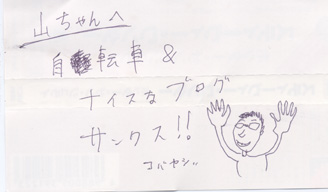 山ちゃんへ
自転車 &
ナイスなブログ
サンクス!!
コバヤシ